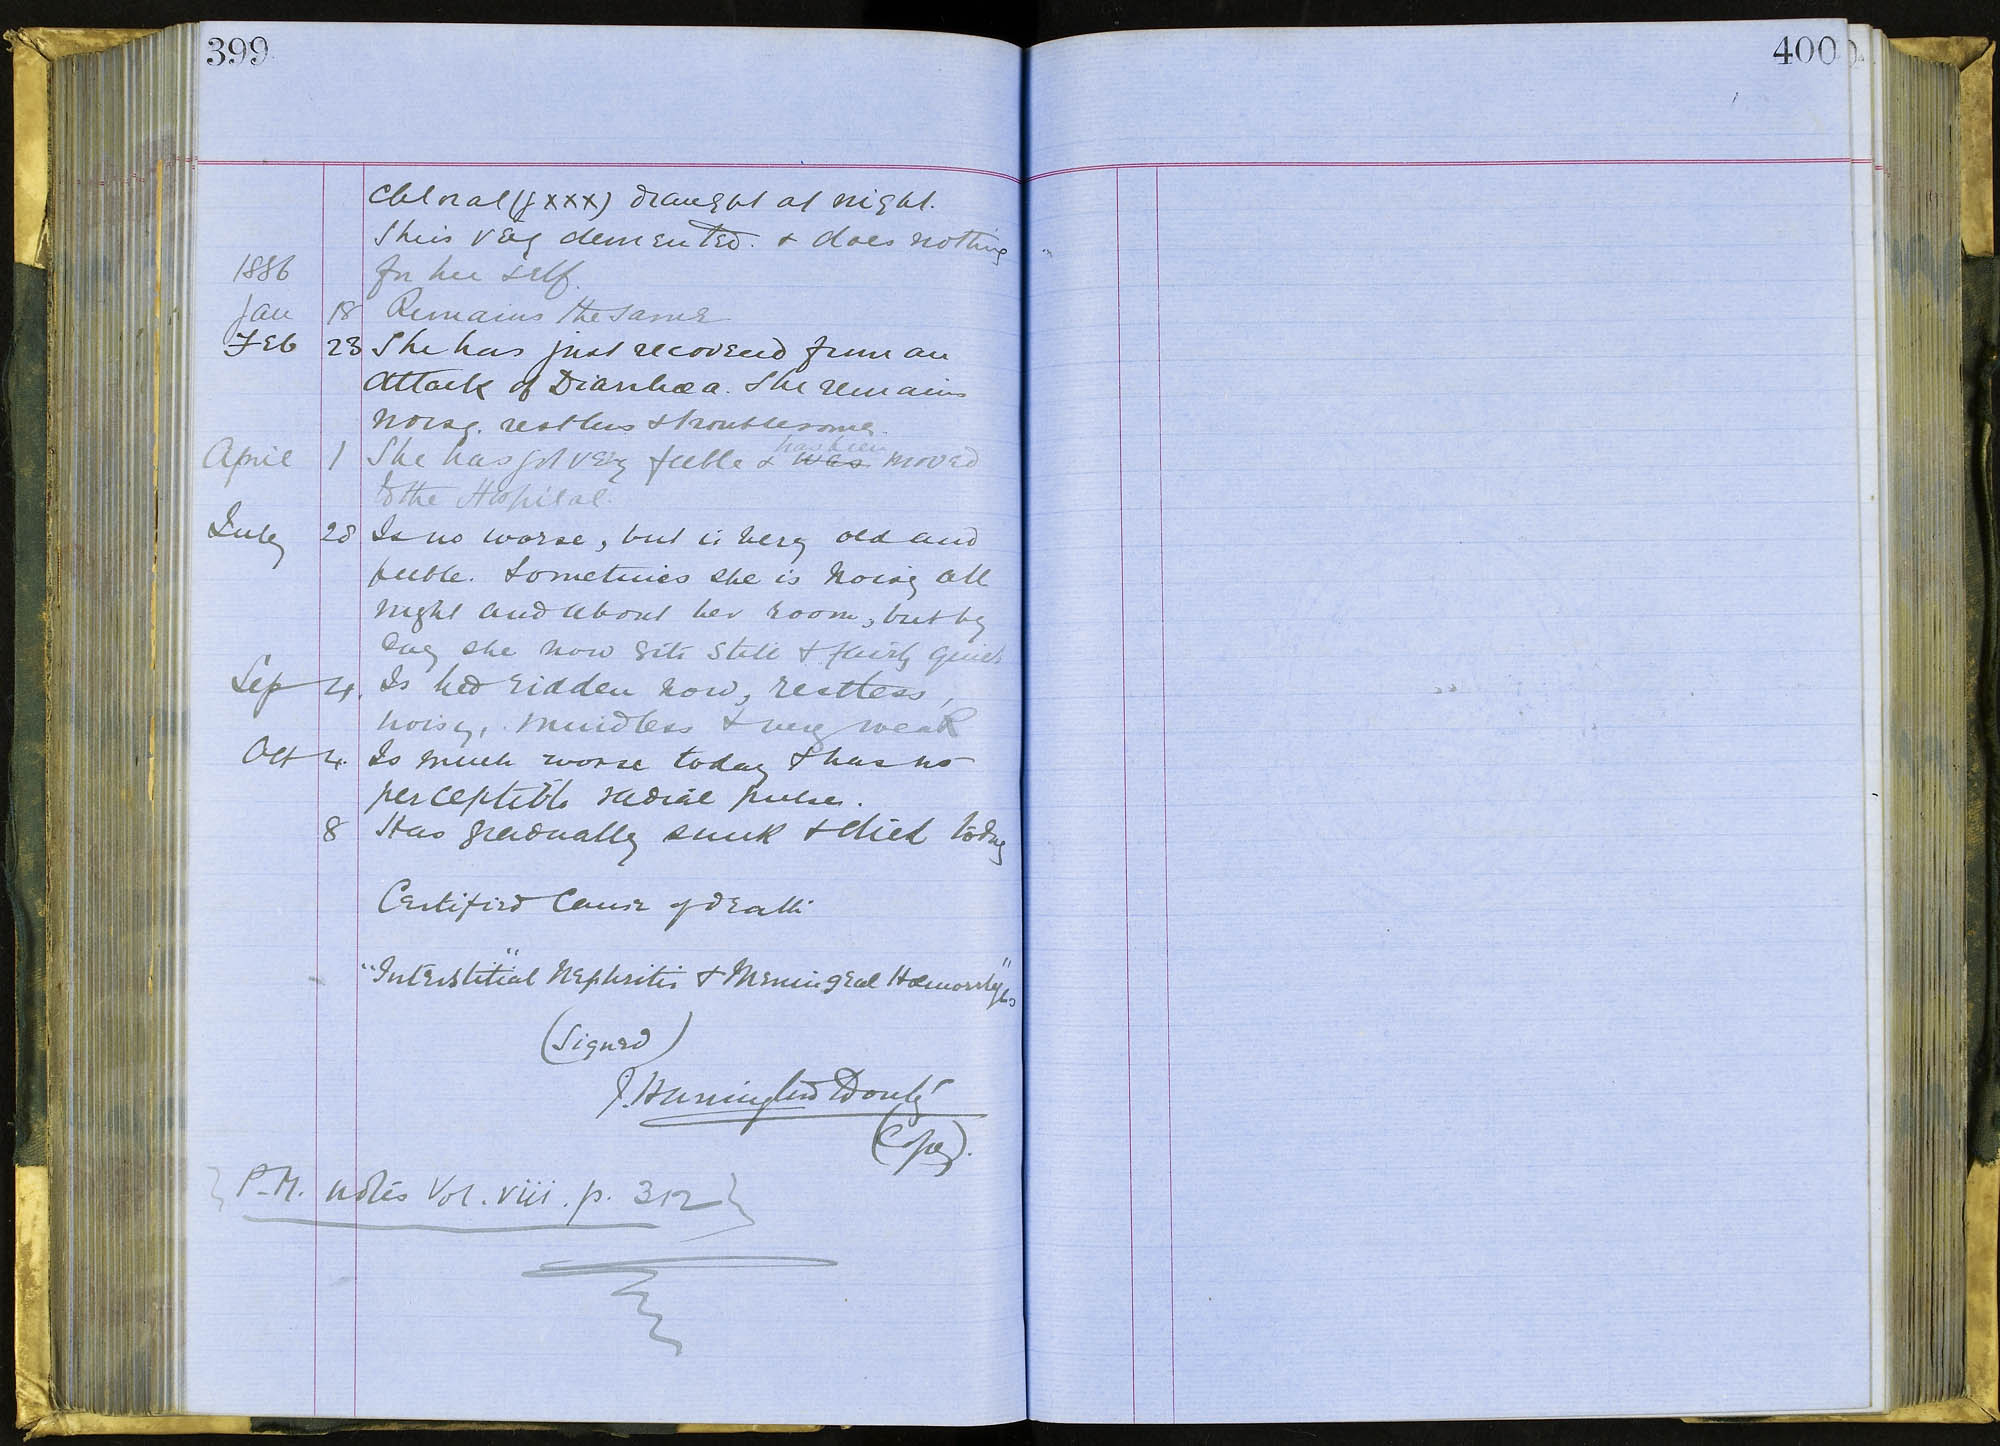 399
Chloral (gxxx) draught at night.
She is very demented & does nothing
1886 for her self.
Jan 18 Remains the same
Feb 23 She has just recovered from an
attack of Diarrhœa. She remains
noisy, restless & troublesome.
has been
April 1 She has got very feeble & was moved
to the Hospital.
July 28 Is no worse, but is very old and
feeble. Sometimes she is noisy all
night and about her room, but by
day she now sits still & fairly quiet
Sep 4. Is bed ridden now, restless,
noisy, mindless & very weak
Oct 4. Is much worse today & has no
perceptible radial pulse.
8 Has gradually sunk & died today
Certified Cause of death
"Interstitial Nephritis & Meningeal Hæmorrhage"
(Signed)
J.
(Copy).
P.M. notes Vol. viii. p. 312
400